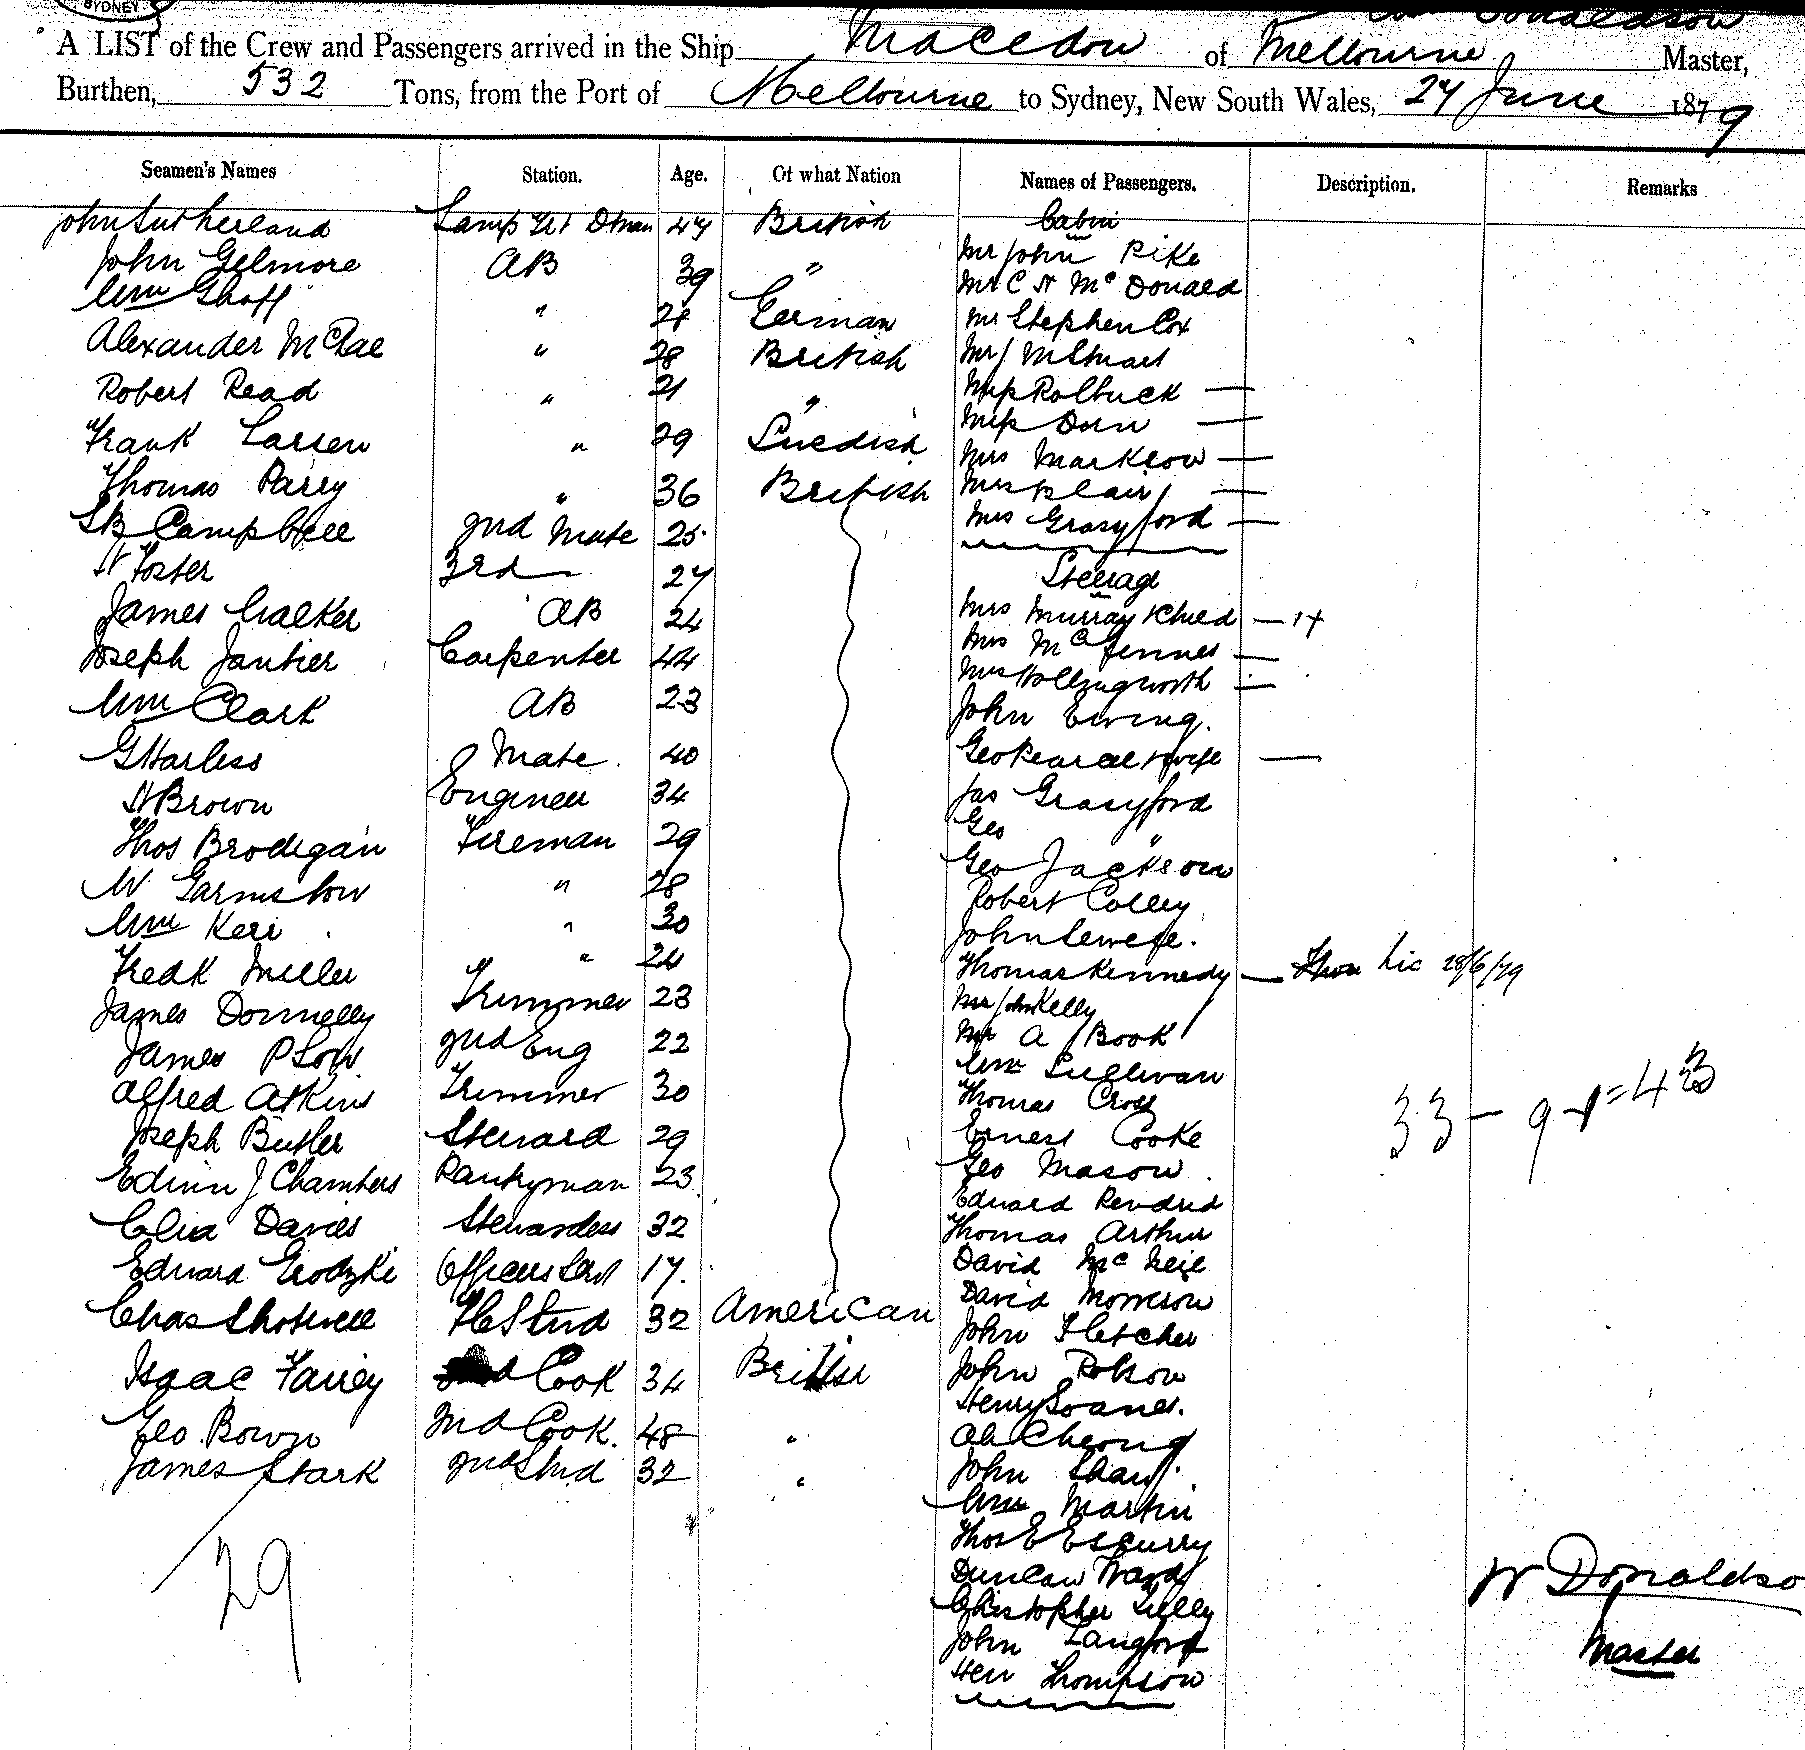 SYDNEY
Donaldson
A LIST of the Crew and Passengers arrived in the Ship Macedon of Melbourne Master,
Burthen, 532 Tons, from the Port of Melbourne to Sydney, New South Wales, 27 June 1879
Seamen's Names Station. Age. Of what Nation Names of Passengers. Description. Remarks
John Sutherland Lamp 47 British Cabin
John Gilmore AB 39 " Mr John Pike
Wm " 28 German Mr C H McDonald
Mr Stephen Cox
Alexander McRae " 28 British Mr J M Stuart
Robert Read " 21 " Miss Rolbuck —
Miss —
Frank Larsen " 29 Swedish Mrs Marklow —
Thomas Parry " 36 British Mrs Blair —
S B Campbell 2nd Mate 25 Mrs Grasyford —
H Foster 3rd — 27 Steerage
James Walker AB 24 Mrs Murray & Child — 1+
Mrs Mc —
Joseph Jantier Carpenter 44 Mrs Hollingworth —
Wm Clark AB 23 John Ewing.
G Harless Mate 40 Geo Pearce & wife —
H Brown Engineer 34 Jas Grasyford
Thos Brodigan Fireman 29 Geo "
Geo Jackson
W Garmston " 28 Robert Colley
Wm Kerr " 30 John
Fredk Miller " 24 Thomas Kennedy — Lic 28/6/79
James Donnelly Trimmer 23 Mr John Kelly
James P Low 2nd Eng 22 Mr A Book
Wm Sullivan
Alfred Atkins Trimmer 30 Thomas Cross
33 — 9 + 1 = 43
Joseph Butler Steward 29 Ernest Cooke
Geo Mason
Edwin J Chambers Pantryman 23 Edward
Eliza Davies Stewardess 32 Thomas Arthur
Edward Grodzki Officers Servt 17. David McNeil
Chas Shotwell F C Stwd 32 American David Morrison
John Fletcher
Isaac Fairey Cook 34 British John Robson
Henry Soanes.
Geo. Bown 2nd Cook. 48 " Ah Cheong
James Stark 2nd Stwd 32 " John Shaw
Wm Martin
29
Thos E Escurry
Duncan Ward
W Donaldso
Christopher Lilly
John Langford
Master
Hen Thompson